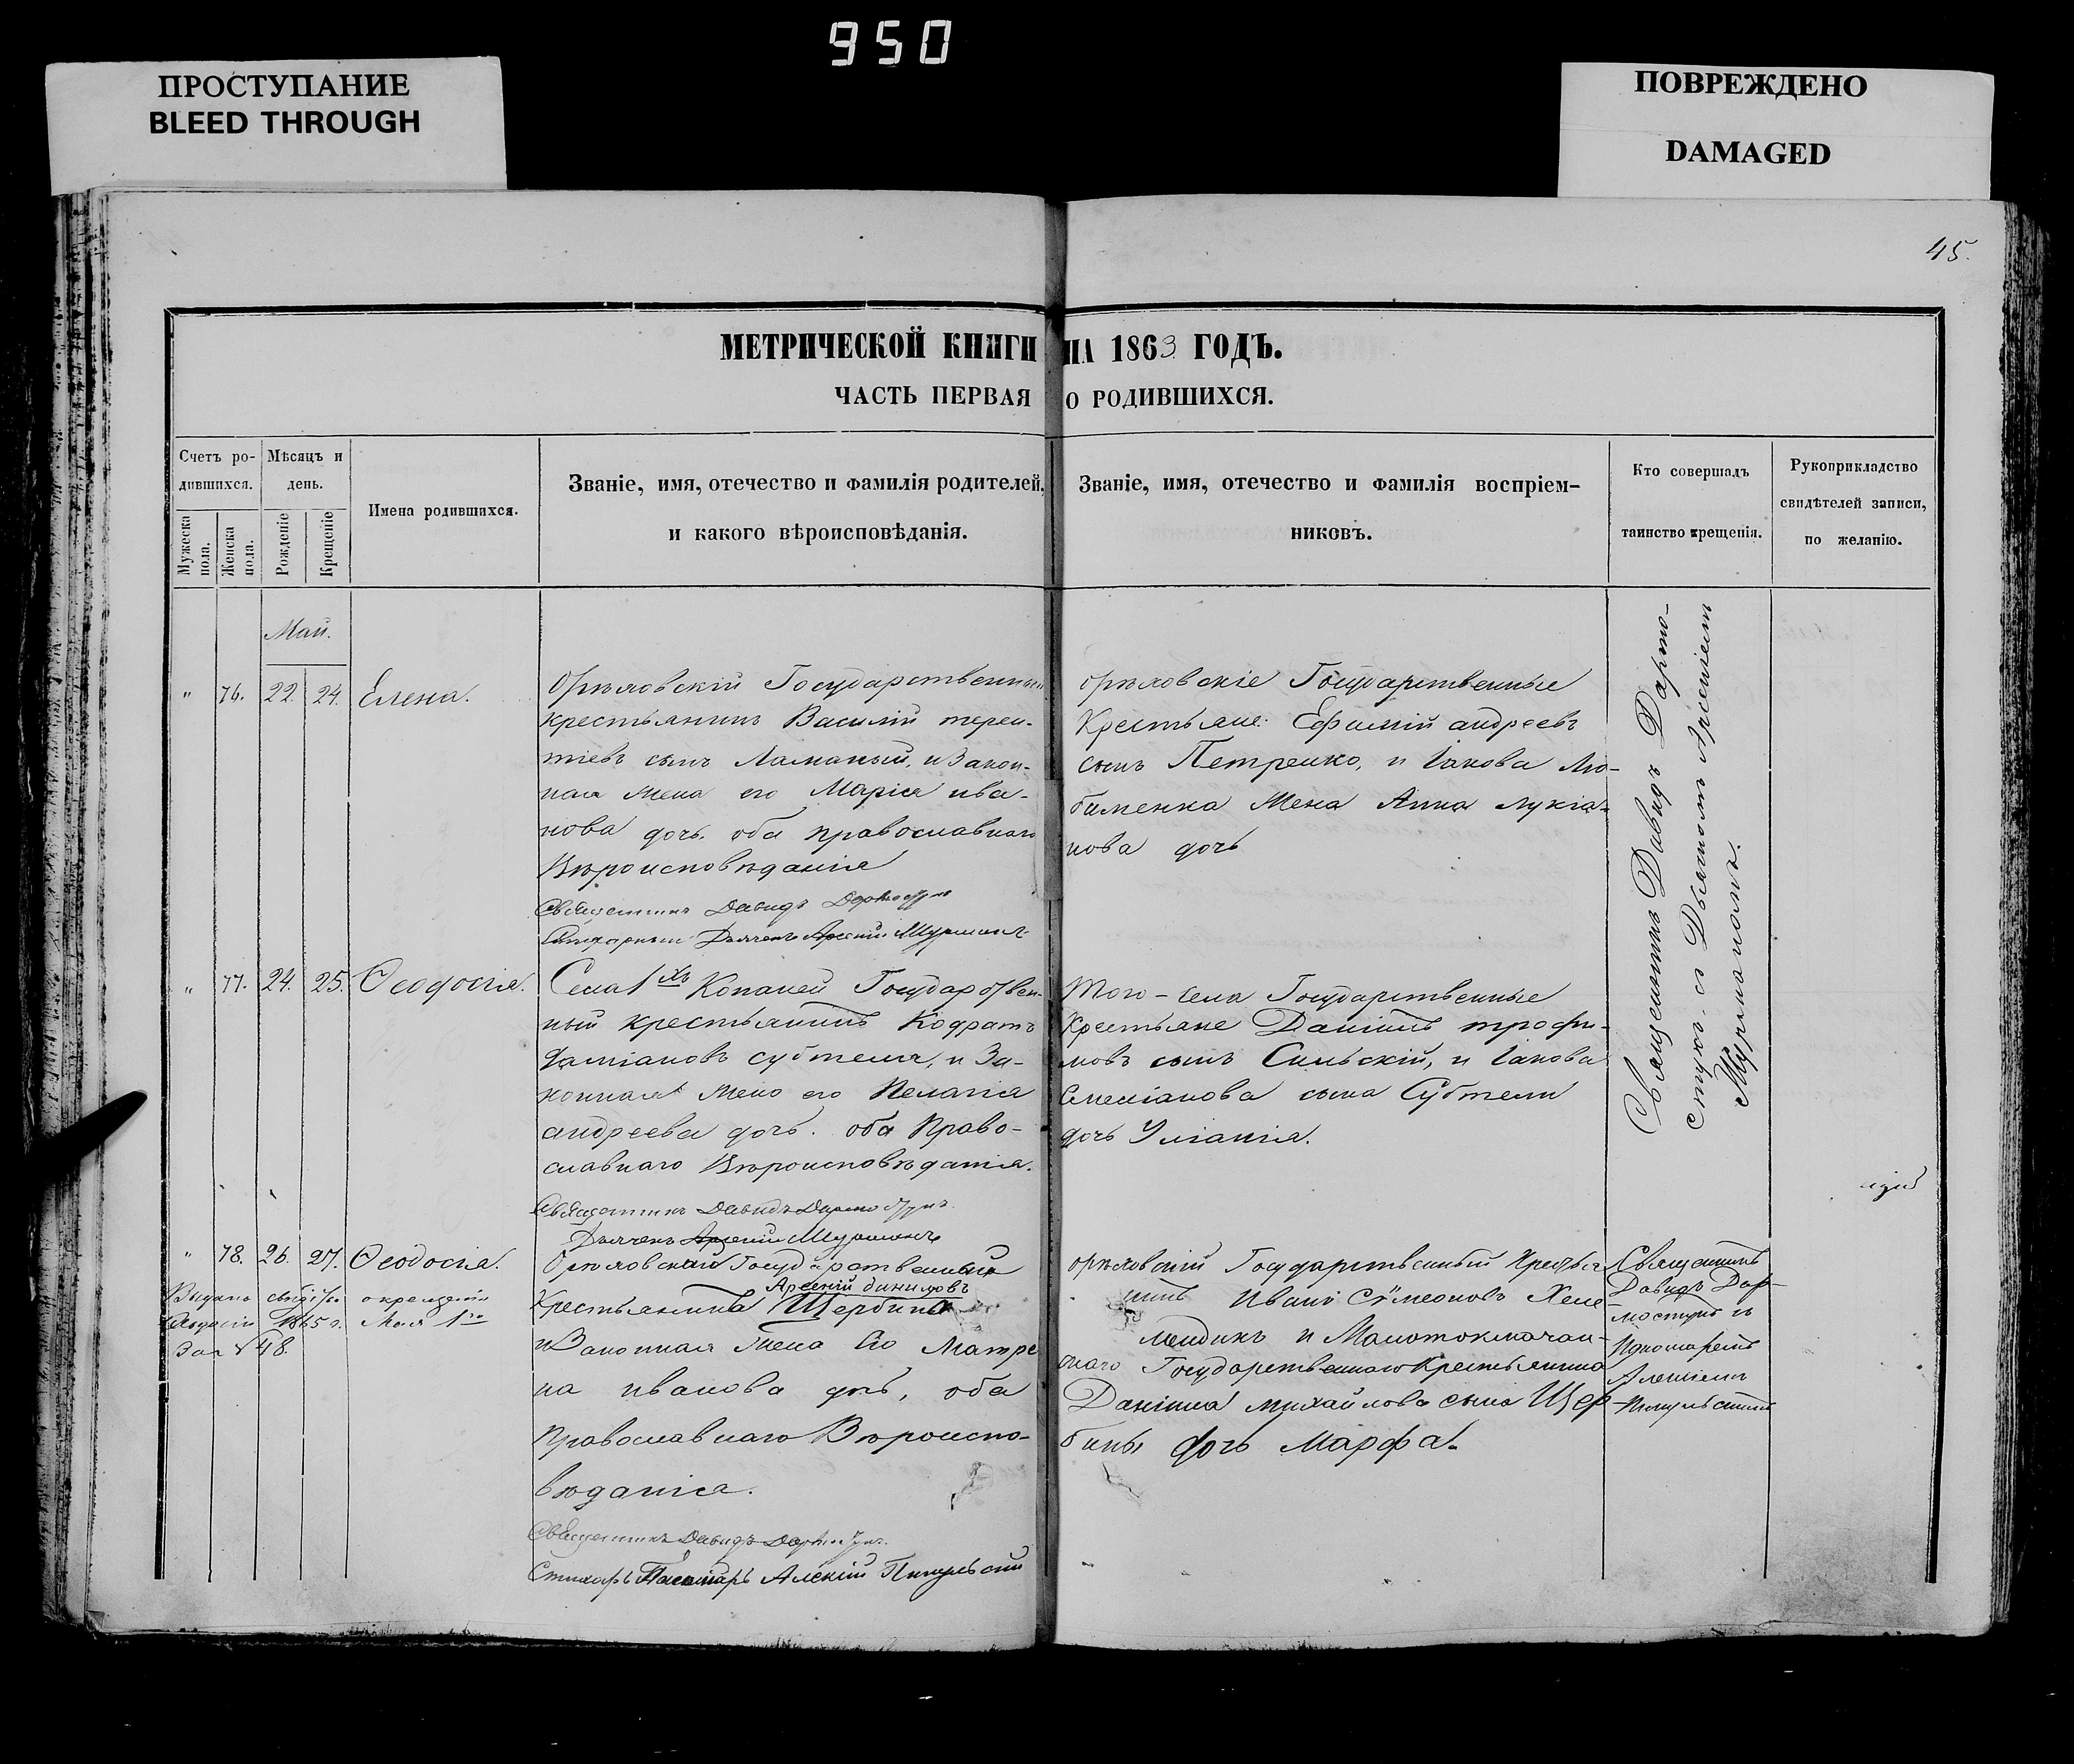 950
ПРОСТУПАНИЕ
BLEED THROUGH
ПОВРЕЖДЕНО
DAMAGED
45.
МЕТРИЧЕСКОЙ КНИГИ НА 1863 ГОДЪ.
ЧАСТЬ ПЕРВАЯ О РОДИВШИХСЯ.
Счетъ ро-
дившихся.
Мужеска пола.
Женска пола.
Мѣсяцъ и
день.
Рожденіе
Крещеніе
Имена родившихся.
Званіе, имя, отечество и фамилія родителей,
и какого вѣроисповѣданія.
Званіе, имя, отечество и фамилія воспріем-
никовъ.
Кто совершалъ
таинство крещенія.
Рукоприкладство
свидѣтелей записи,
по желанію.
Май.
" 76. 22. 24. Елена.
Орѣховскій Государственный
крестьянинъ Василій терен-
тіевъ сынъ Ламаный, и Закон-
ная жена его Марія ива-
нова дочь. оба православнаго
Вѣроисповѣданія
Священникъ Давидъ
Стихарный Дьячекъ Арсеній
орѣховскіе Государственные
Крестьяне: Ефимій андреевъ
сынъ Петренко, и Іакова Лю-
бименка жена Анна лукіа-
нова дочь
Священникъ Давидъ Дармо-
стукъ. съ Дьячкомъ Арсеніемъ
" 77. 24. 25. Ѳеодосія.
Села 1хъ Копаней Государствен-
ный крестьянинъ Кодратъ
даміановъ субтеля, и За-
конная жена его Пелагія
андреева дочь. оба Право-
славнаго Вѣроисповѣданія.
Священникъ Давидъ
Дьячекъ Арсеній
Того-села Государственные
Крестьяне Даніилъ трофи-
мовъ сынъ Сильскій, и Іакова
сына Субтели
дочь Уліанія.
" 78. 26. 27. Ѳеодосія.
Выдано о крещеніи
1865 г. Мая
За № 48.
Орѣховскій Государственный
Арсеній даниловъ
Крестьянинъ Щербина
и Законная жена Его Матре
на иванова дочь, оба
Православнаго Вѣроиспо-
вѣданія.
Священникъ Давидъ
Пономарь Алексій
орѣховскій Государственный Кресть
нинъ Иванъ Сѵмеоновъ
и
Государственнаго Крестьянина
Даніила михайлова сына Щер-
бины дочь Марфа.
Священникъ
Давидъ Дар-
мостукъ съ
Пономаремъ